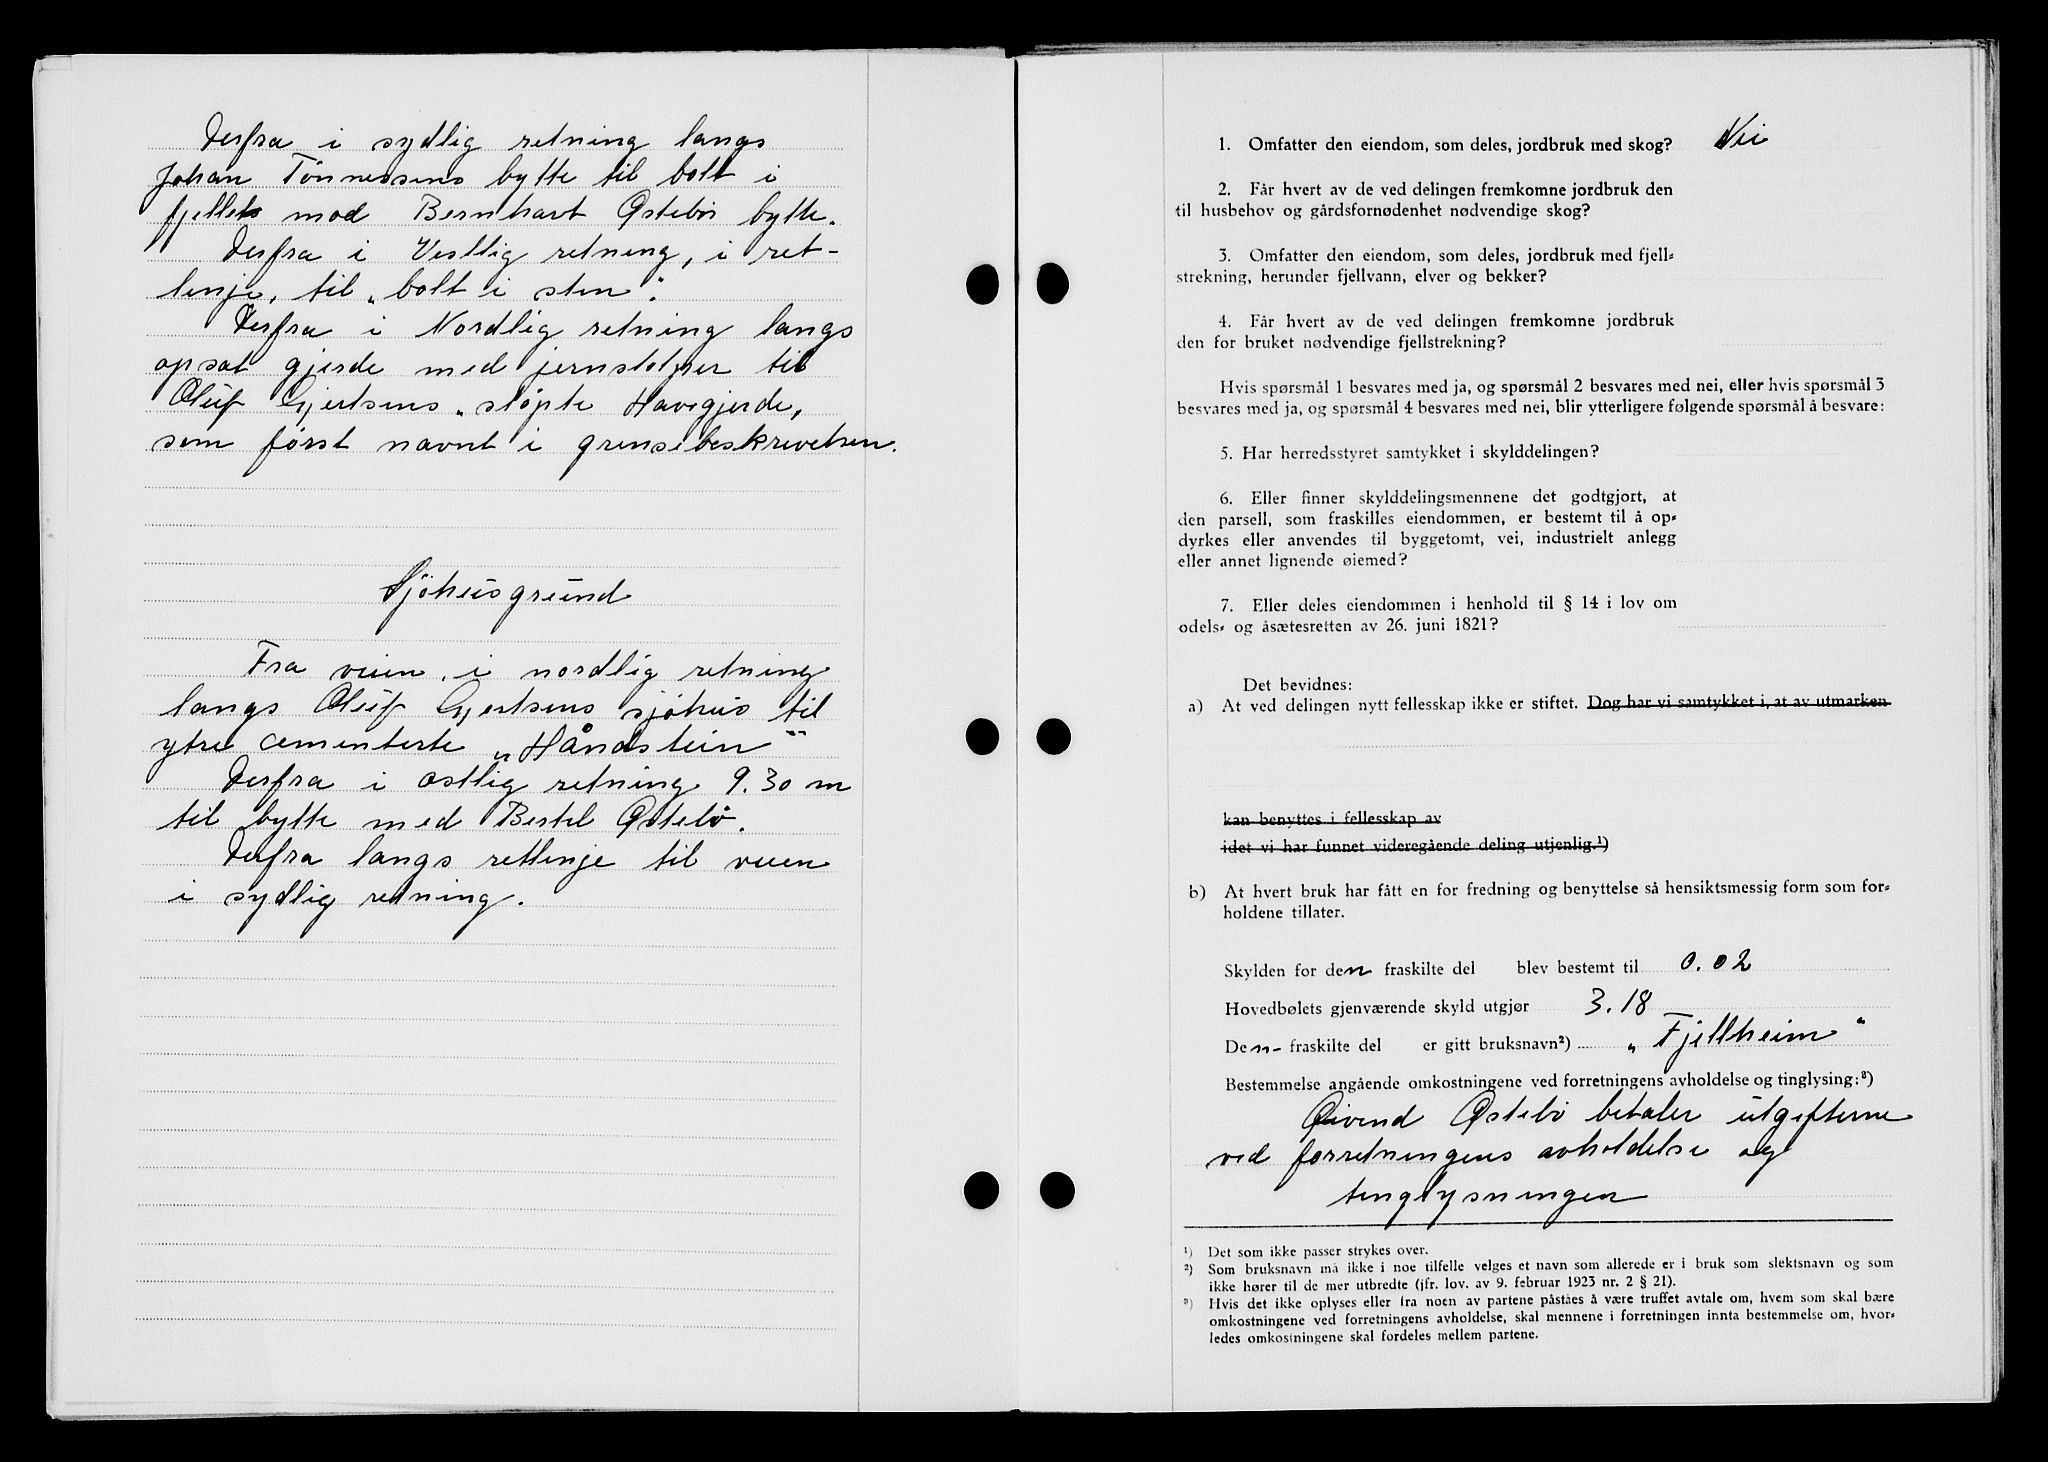 Derfra i sydlig retning langs
Johan Tönnessens bytte til bolt i
fjellet mod Bernhart Østebös bytte.
Derfra i Vestlig retning, i ret-
linje, til „bolt i sten".
Derfra i Nordlig retning langs
opsat gjerde med jernstolper til
Oluf Gjertsens „stöpte Havegjerde,
som först navnt i grensebeskrivelsen.
Sjöhusgrund
Fra veien, i nordlig retning
langs Oluf Gjertsens sjöhus til
ytre cementerte „Håndstein"
Derfra i östlig retning 9.30 m
til bytte med Bertel Østebö.
Derfra langs retlinje til veien
i sydlig retning.
1. Omfatter den eiendom, som deles, jordbruk med skog? Nei
2. Får hvert av de ved delingen fremkomne jordbruk den
til husbehov og gårdsfornødenhet nødvendige skog?
3. Omfatter den eiendom, som deles, jordbruk med fjell-
strekning, herunder fjellvann, elver og bekker?
4. Får hvert av de ved delingen fremkomne jordbruk
den for bruket nødvendige fjellstrekning?
Hvis spørsmål 1 besvares med ja, og spørsmål 2 besvares med nei, eller hvis spørsmål 3
besvares med ja, og spørsmål 4 besvares med nei, blir ytterligere følgende spørsmål å besvare:
5. Har herredsstyret samtykket i skylddelingen?
6. Eller finner skylddelingsmennene det godtgjort, at
den parsell, som fraskilles eiendommen, er bestemt til å op-
dyrkes eller anvendes til byggetomt, vei, industrielt anlegg
eller annet lignende øiemed?
7. Eller deles eiendommen i henhold til § 14 i lov om
odels- og åsætesretten av 26. juni 1821?
Det bevidnes:
a) At ved delingen nytt fellesskap ikke er stiftet. Dog har vi samtykket i, at av utmarken
kan benyttes i fellesskap av
idet vi har funnet videregående deling utjenlig.¹)
b) At hvert bruk har fått en for fredning og benyttelse så hensiktsmessig form som for-
holdene tillater.
Skylden for den fraskilte del blev bestemt til 0.02
Hovedbølets gjenværende skyld utgjør 3.18
Den- fraskilte del er gitt bruksnavn²) „Fjellheim"
Bestemmelse angående omkostningene ved forretningens avholdelse og tinglysing:³)
Øivend Østebö betaler utgifterne
ved forretningens avholdelse og
tinglysningen
¹) Det som ikke passer strykes over.
²) Som bruksnavn må ikke i noe tilfelle velges et navn som allerede er i bruk som slektsnavn og som
ikke hører til de mer utbredte (jfr. lov. av 9. februar 1923 nr. 2 § 21).
³) Hvis det ikke oplyses eller fra noen av partene påståes å være truffet avtale om, hvem som skal bære
omkostningene ved forretningens avholdelse, skal mennene i forretningen innta bestemmelse om, hvor-
ledes omkostningene skal fordeles mellem partene.